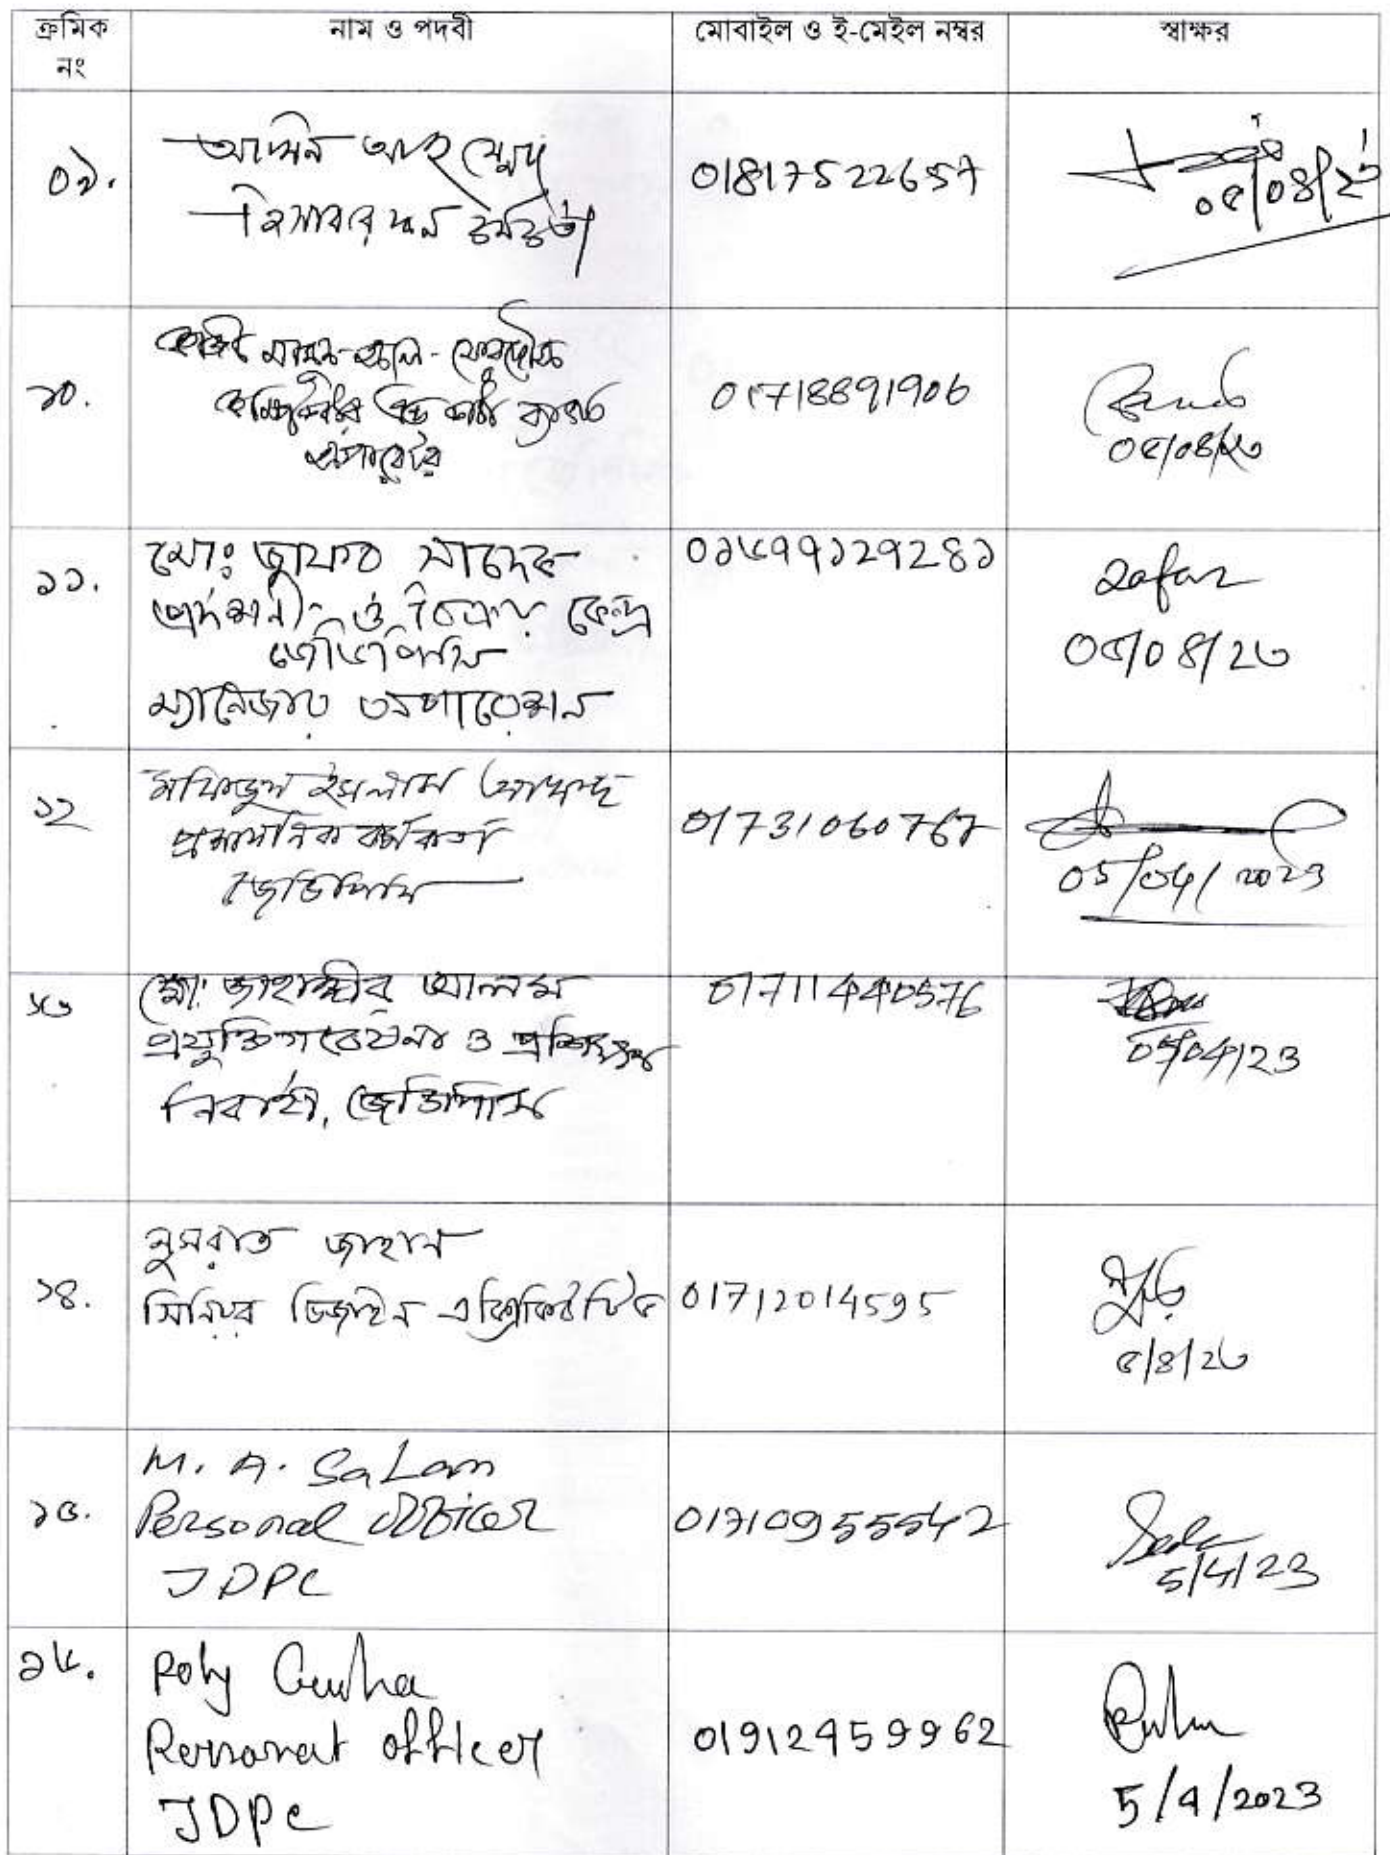 ক্রমিক নং
নাম ও পদবী
মোবাইল ও ই-মেইল নম্বর
স্বাক্ষর
০৯.
হিসাবরক্ষণ কর্মকর্তা
01817522657
০৫/০৪/২৩
১০.
অপারেটর
01718891906
০৫/০৪/২৩
১১.
মোঃ জাফর সাদেক
প্রদর্শনী ও বিক্রয় কেন্দ্র
জেডিপিসি
ম্যানেজার অপারেশন
০১৬৭৭১২৭২৪১
Zafar
০৫/০৪/২৩
১২
মফিজুল ইসলাম
প্রশাসনিক কর্মকর্তা
জেডিপিসি
01731060767
05/04/2023
১৩
মোঃ জাহাঙ্গীর আলম
প্রযুক্তি গবেষনা ও প্রশিক্ষণ
নির্বাহী, জেডিপিসি
01711440576
05/04/23
১৪.
নুসরাত জাহান
সিনিয়র ডিজাইন এক্সিকিউটিভ
01712014595
৫/৪/২৩
১৫.
M. A. Salam
Personal Officer
JDPC
01710955542
5/4/23
১৬.
Poly Guha
Personal officer
JDPC
01912959962
5/4/2023